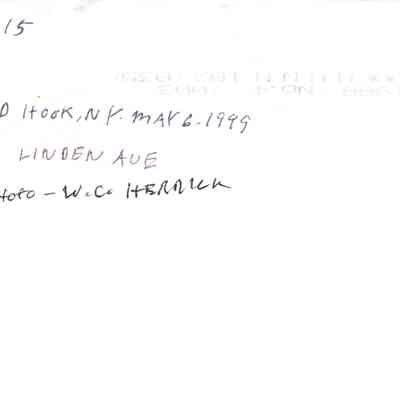 15
D HOOK, N.Y. MAY 6-1999
LINDEN AVE
HOTO - W.C. HERRICK